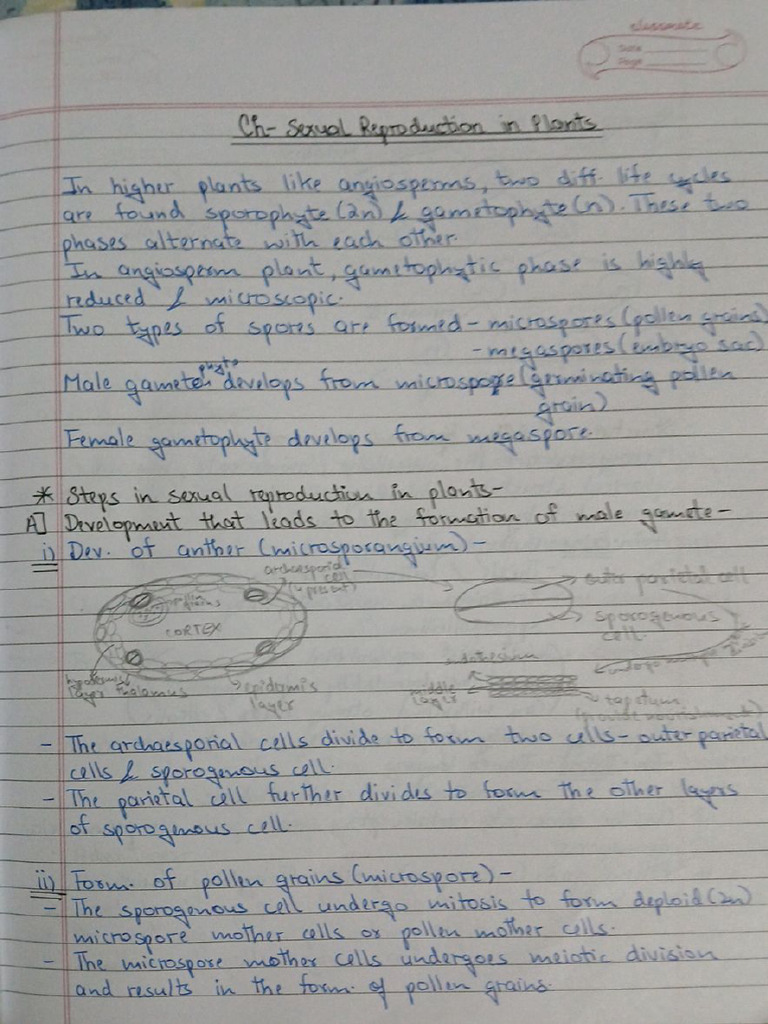 classmate
Date
Page
Ch- Sexual Reproduction in Plants
In higher plants like angiosperms, two diff. life cycles
are found sporophyte (2n) & gametophyte (n). These two
phases alternate with each other.
In angiosperm plant, gametophytic phase is highly
reduced & microscopic.
Two types of spores are formed - microspores (pollen grains)
- megaspores (embryo sac)
Male gametophyte develops from microspore (germinating pollen
grain)
Female gametophyte develops from megaspore.
* Steps in sexual reproduction in plants-
A] Development that leads to the formation of male gamete-
i) Dev. of anther (microsporangium)-
archaesporial
cell
(4 present)
CORTEX
layer thalamus
epidermis
layer
outer parietal cell
sporogenous
cell.
middle
layer
tapetum
- The archaesporial cells divide to form two cells - outer parietal
cells & sporogenous cell.
- The parietal cell further divides to form the other layers
of sporogenous cell.
ii) Form. of pollen grains (microspore)-
- The sporogenous cell undergo mitosis to form deploid (2n)
microspore mother cells or pollen mother cells.
- The microspore mother cells undergoes meiotic division
and results in the form. of pollen grains.